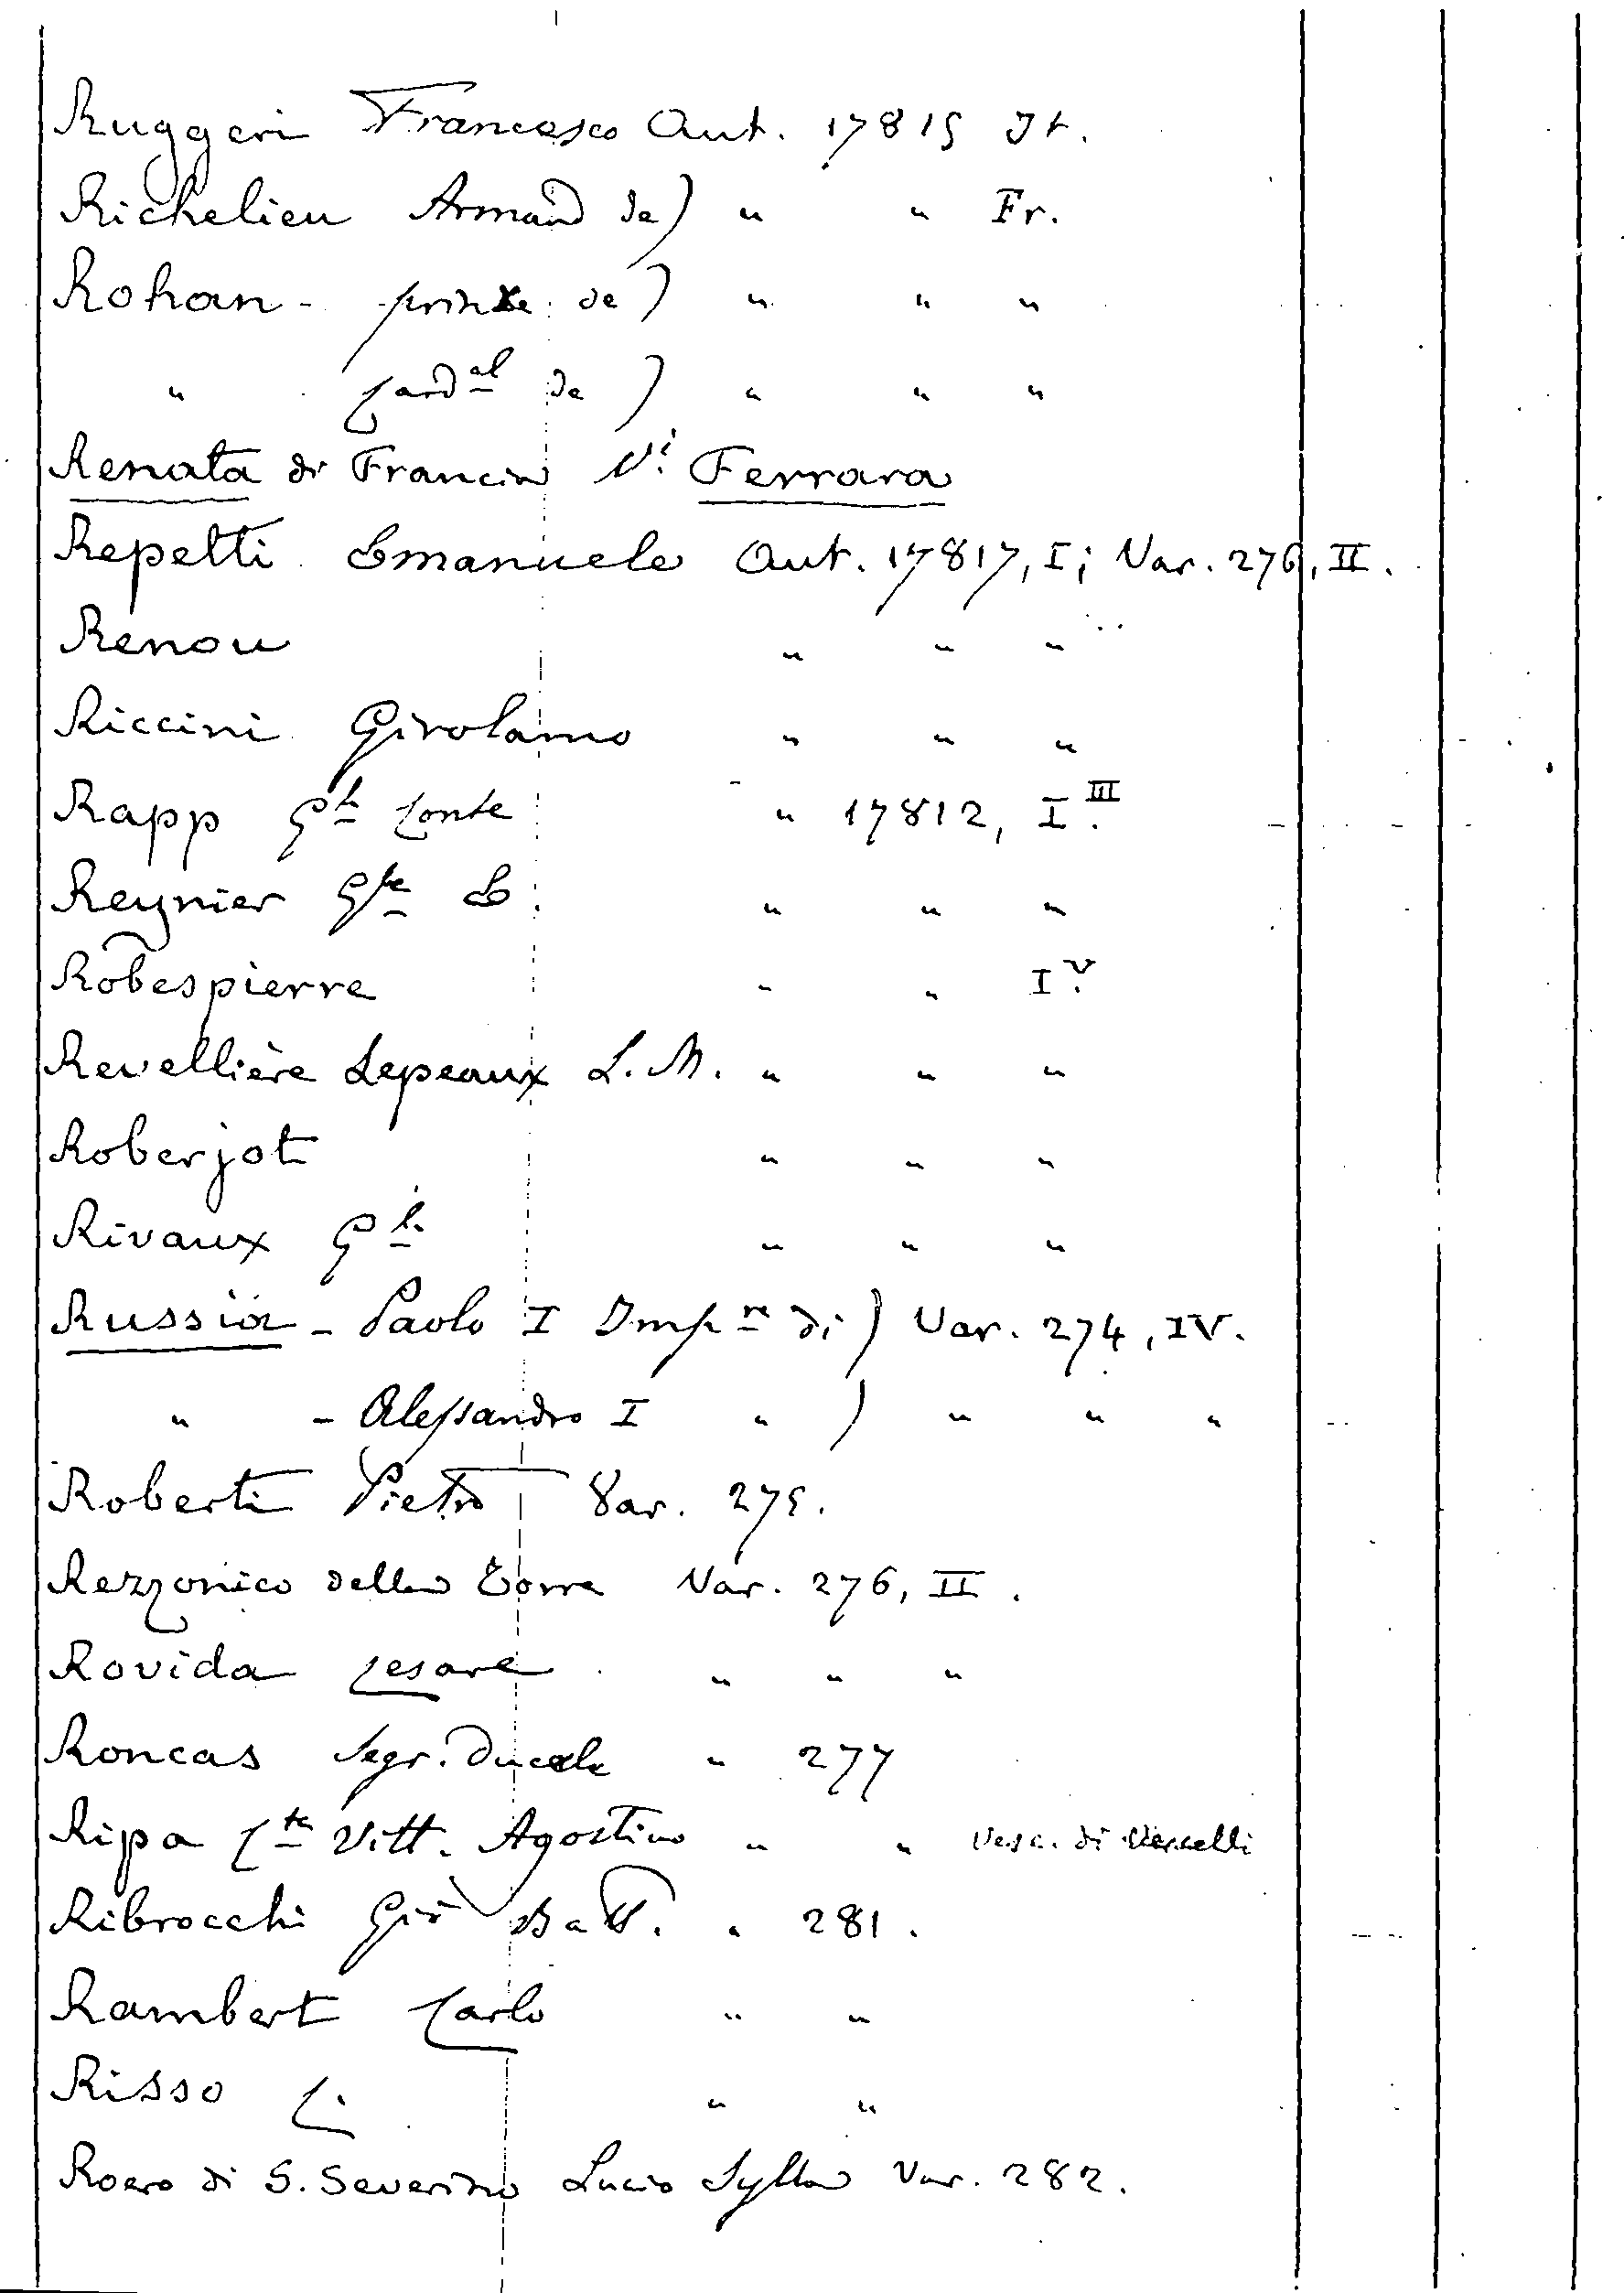 Ruggeri Francesco Aut. 17815 It.
Richelieu Armand de) " " Fr.
Rohan - prince de) " " "
" Card.al de) " " "
Renata di Francia V.i Ferrara
Repetti Emanuele Aut. 17817, I; Var. 276, II.
Renou " " "
Riccini Girolamo " " "
Rapp G.le Conte " 17812, I.III
Reynier G.le E. " " "
Robespierre " " I.V
Revellière Lepeaux L. M. " " "
Roberjot " " "
Rivaux G.l. " " "
Russia - Paolo I Imp.re di) Var. 274, IV.
" - Alessandro I " ) " " "
Roberti Pietro Var. 275.
Rezzonico della Torre Var. 276, II.
Rovida Cesare " " "
Roncas Segr. Ducale " 277
Ripa C.te Vitt. Agostino " " Vesc. di Vercelli
Ribrocchi Gio Batt. " 281.
Rambert Carlo " "
Risso C. " "
Roero di S. Severino Lucio Sylla Var. 282.